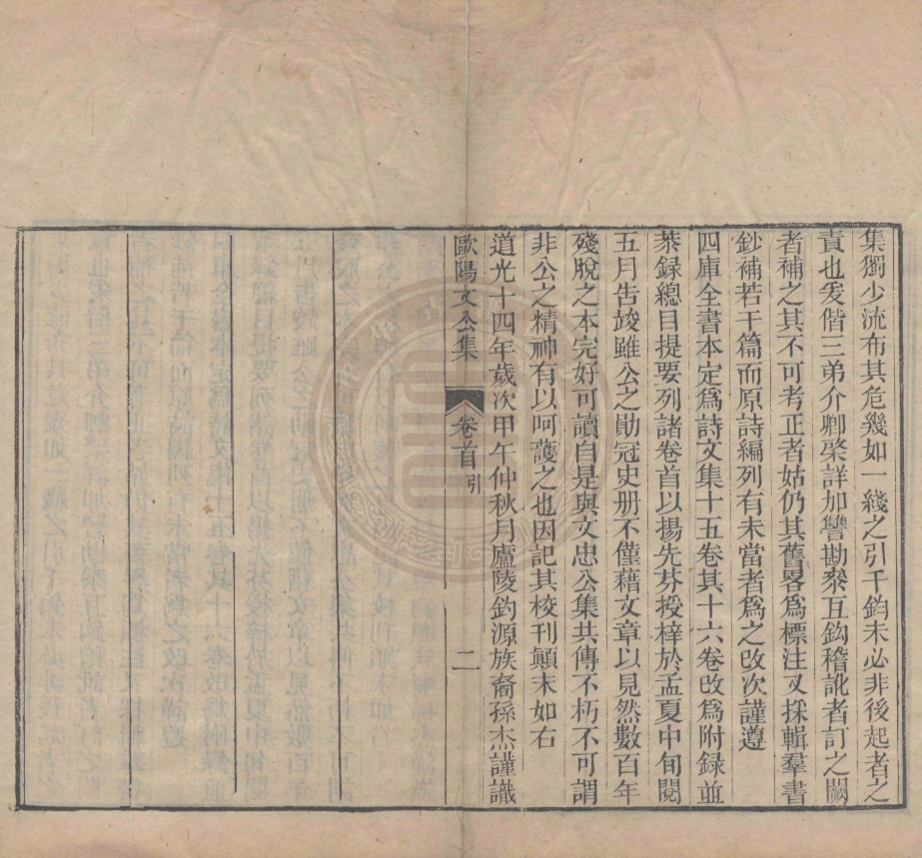 集獨少流布其危幾如一綫之引千鈞未必非後起者之
責也爰偕三弟介卿棨詳加讐勘叅互鈎稽訛者訂之闕
者補之其不可考正者姑仍其舊畧爲標注又採輯羣書
鈔補若干篇而原詩編列有未當者爲之改次謹遵
四庫全書本定爲詩文集十五卷其十六卷改爲附録並
恭録總目提要列諸卷首以揚先芬授梓於孟夏中旬閱
五月告竣雖公之勛冠史册不僅藉文章以見然數百年
殘脫之本完好可讀自是與文忠公集共傳不朽不可謂
非公之精神有以呵護之也因記其校刊顛末如右
道光十四年歲次甲午仲秋月廬陵鈞源族裔孫杰謹識
歐陽文公集 卷首 引 二